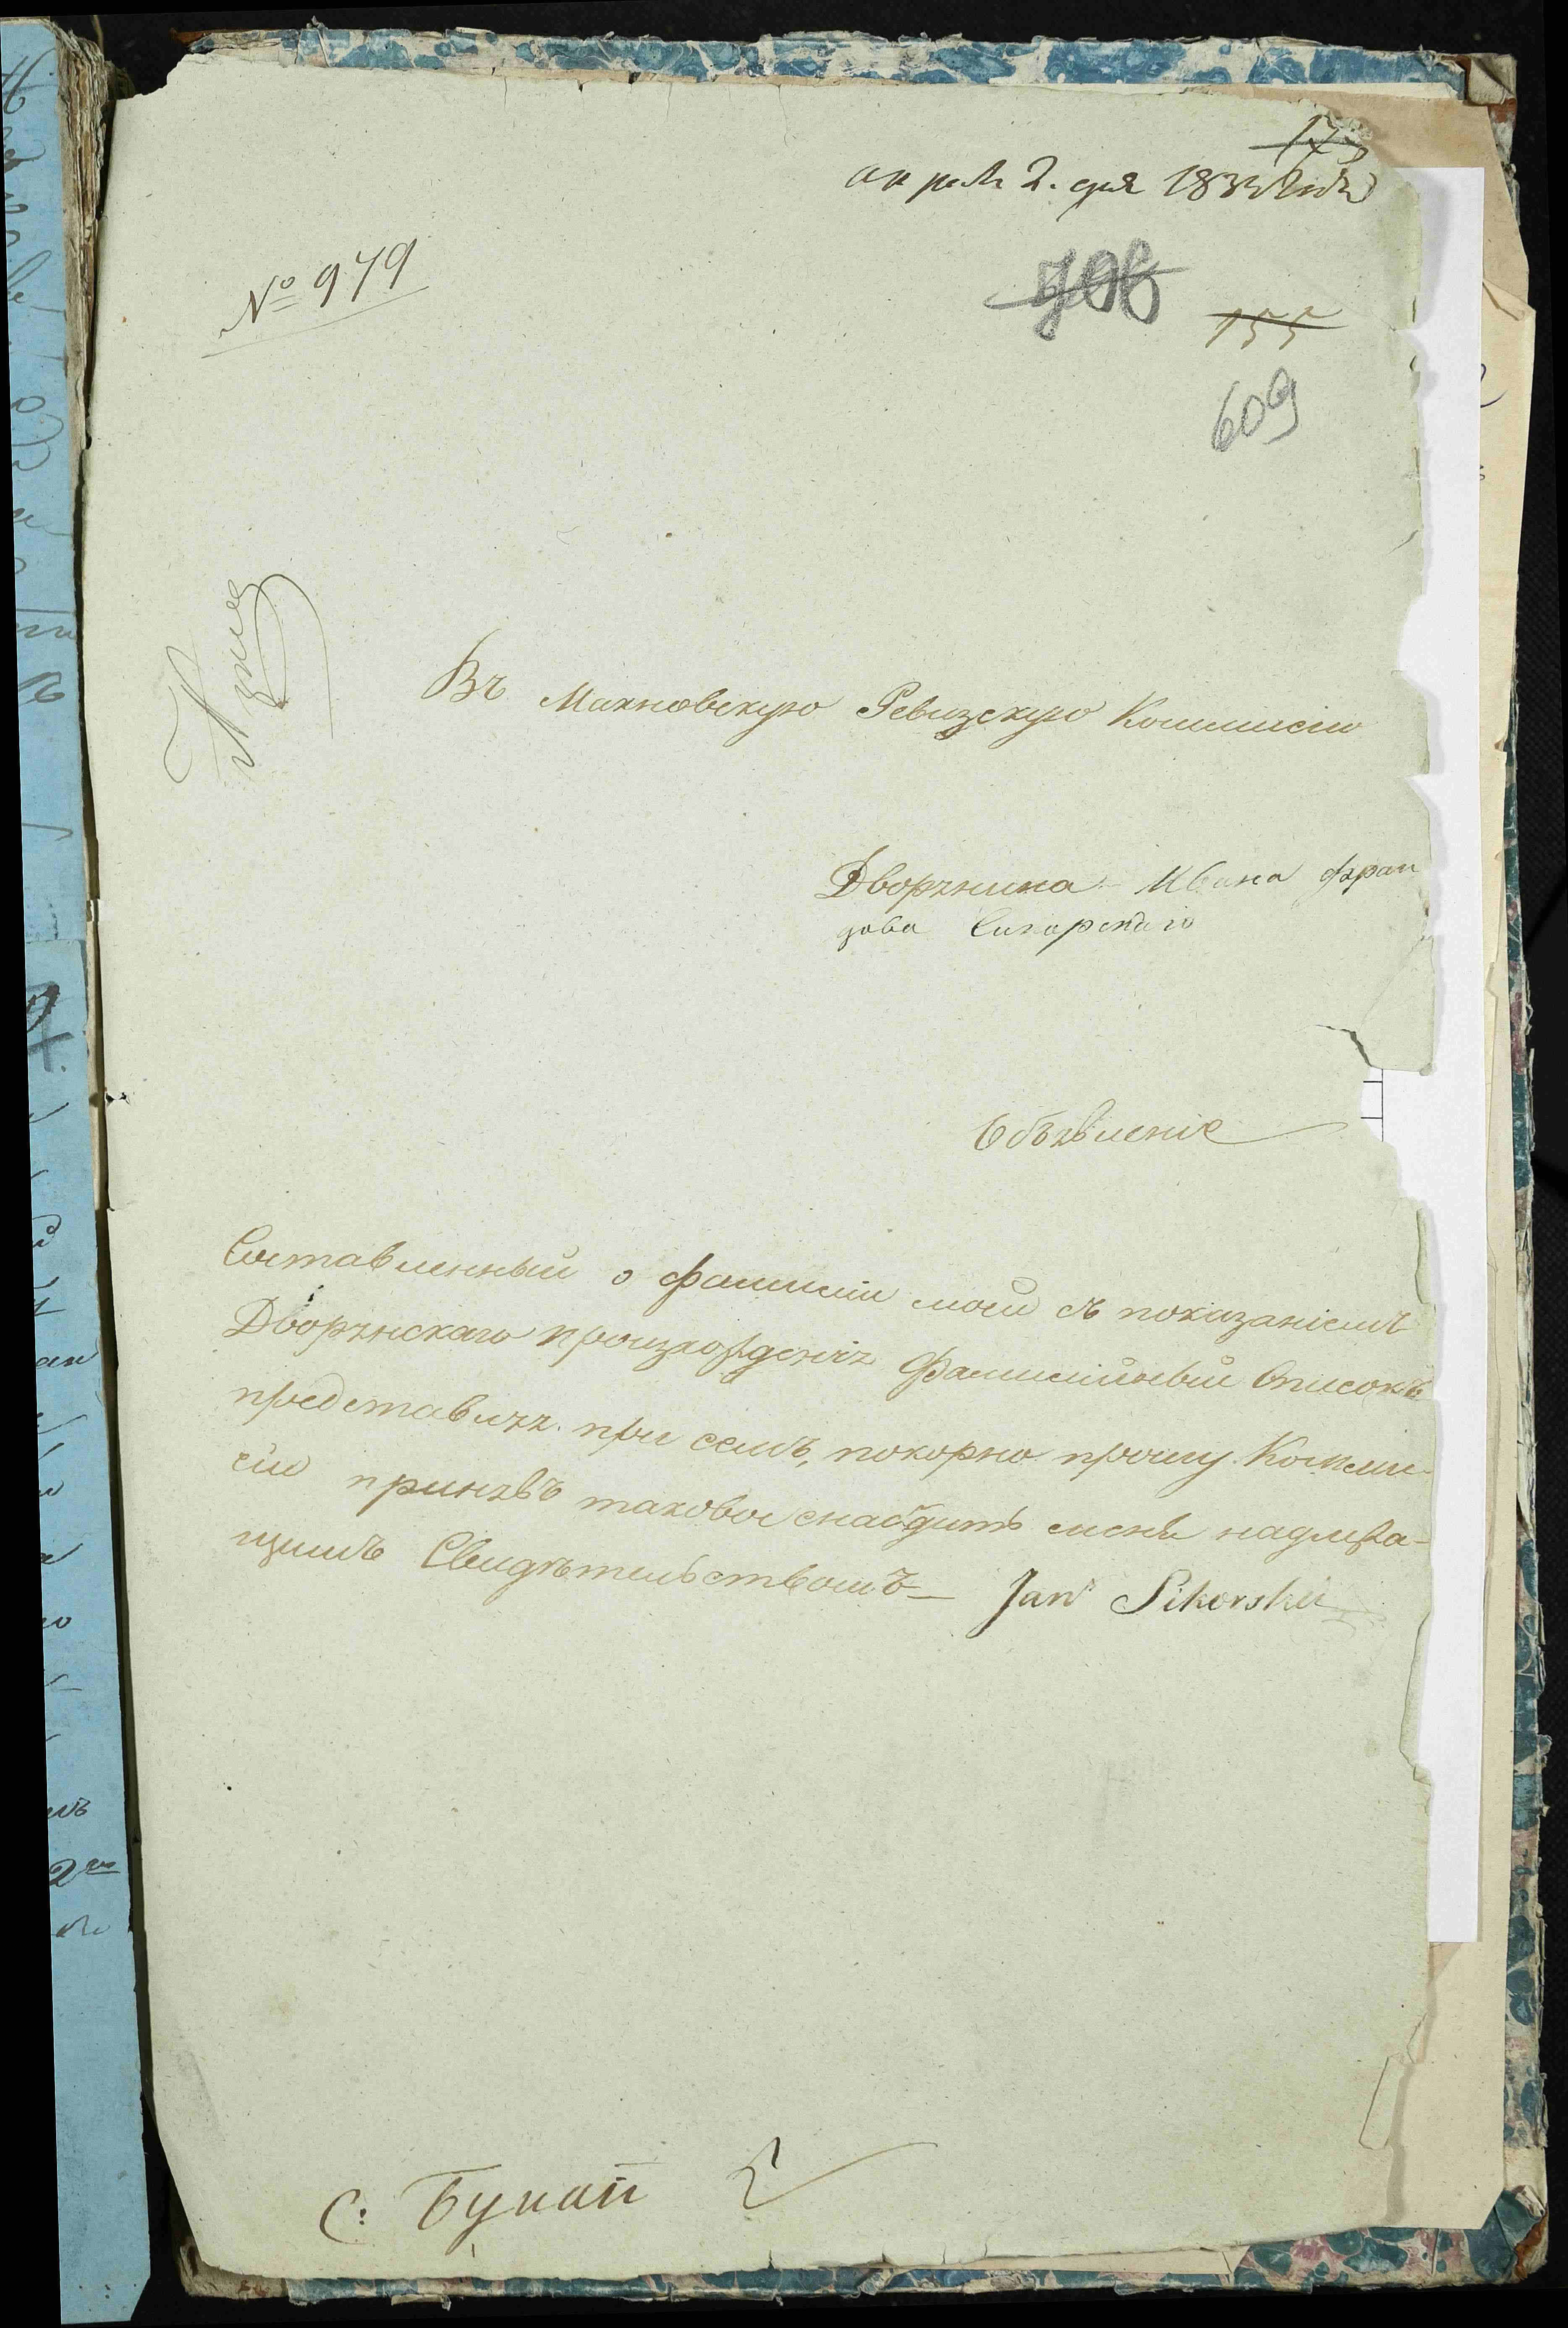 173
апреля 2. дня 1832 года
№ 979
798
155
609
Въ Махновскую Ревизскую Коммисію
Дворянина Ивана Фран
цова Сикорскаго
Объявленіе
Составленный о фамиліи моей съ показаніемъ
Дворянскаго произхожденія Фамилійный Списокъ
представляя при семъ, покорно прошу Коммис-
сію принявъ таковой снабдить меня надлежа-
щимъ Свидѣтельствомъ— Jan Sikorski
С: